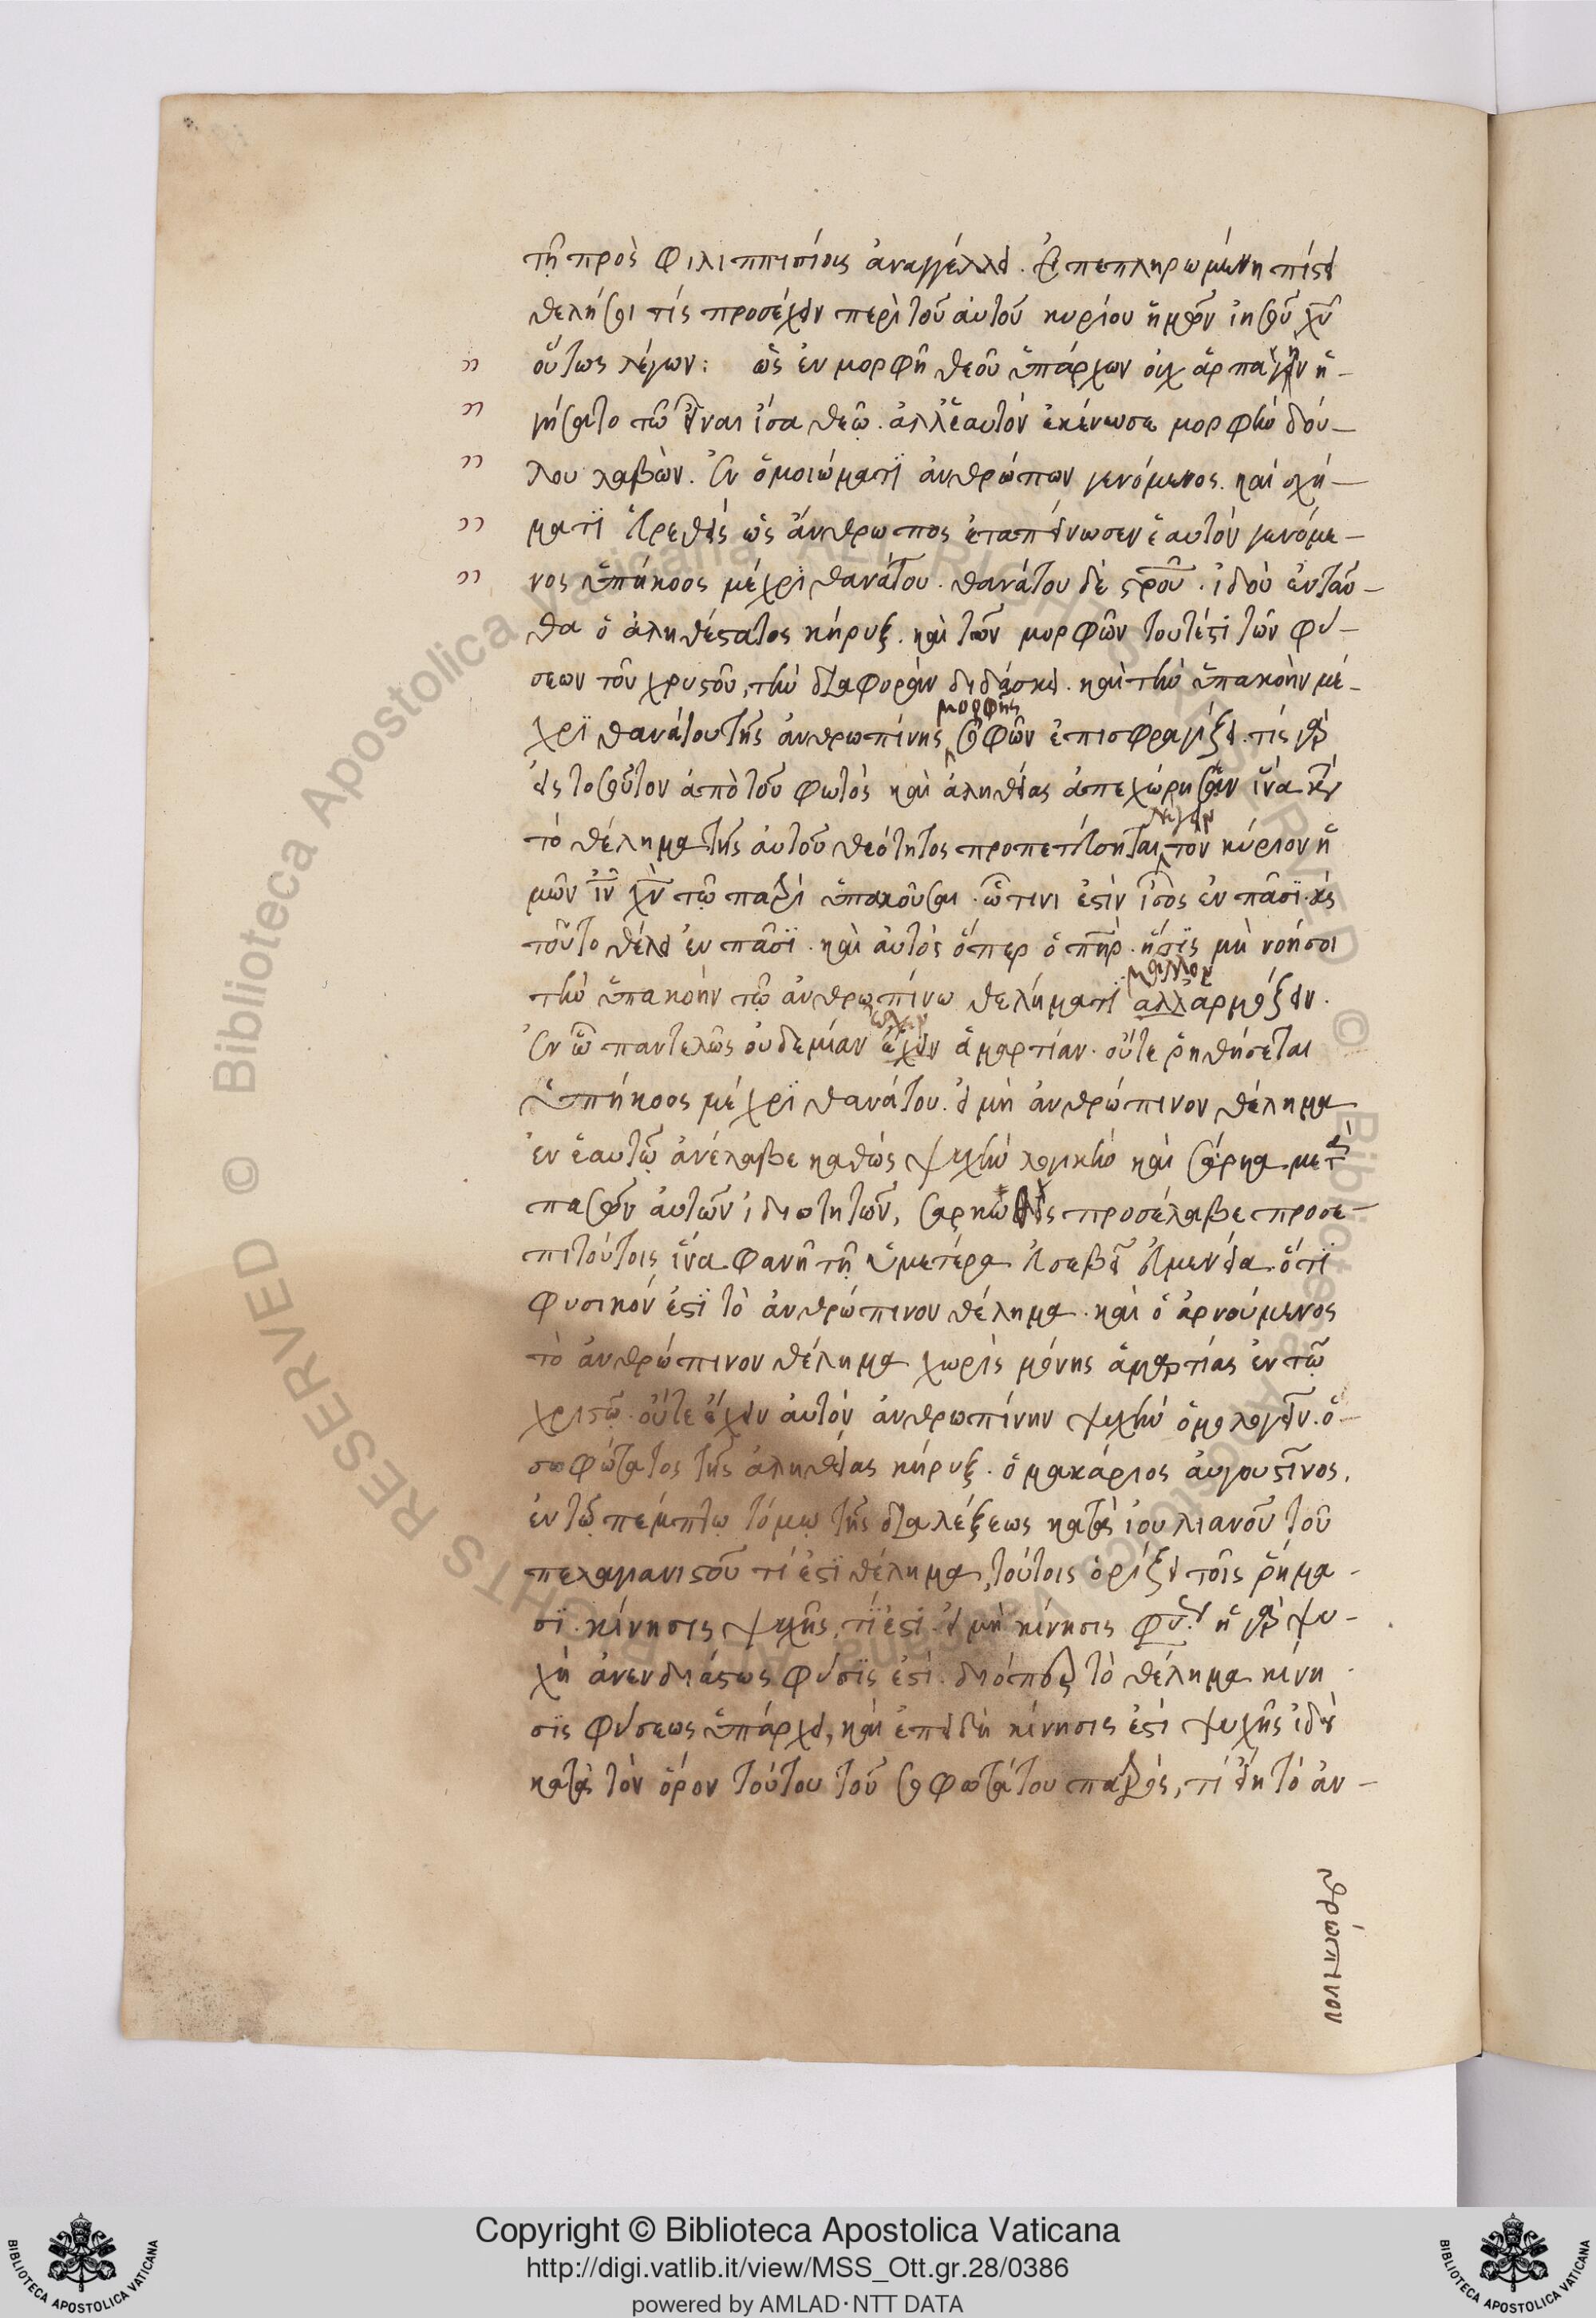 τῇ πρὸς φιλιππισίοις ἀναγγέλλει. εἰ πεπληρωμένη πίστει
θελήσοι τίς προσέχειν περὶ τοῦ αὐτοῦ κυρίου ἡμῶν ἰησοῦ χυ
οὕτως λέγων: ὡς ἐν μορφῇ θεοῦ ὑπάρχων οὐχ ἁρπαγὴν ἡ-
γήσατο τῶ εἶναι ἴσα θεῶ. ἀλλ' ἑαυτόν ἐκένωσε μορφὴν δού-
λου λαβὼν. ἐν ὁμοιώματϊ ἀνθρώπων γενόμενος. καὶ σχή-
ματϊ εὑρεθεὶς ὡς ἄνθρωπος ἐταπείνωσεν ἑαυτὸν γενόμε-
νος ὑπήκοος μέχρϊ θανάτου. θανάτου δὲ στρου. ἰδοὺ ἐνταῦ-
θα ὁ ἀληθέστατος κήρυξ. καὶ τῶν μορφῶν τουτέστι τῶν φύ-
σεων τοῦ χρυστοῦ, τὴν διαφορὰν διδάσκει. καὶ τὴν ὑπακοὴν μέ-
χρϊ θανάτου τῆς ἀνθρωπίνης μορφῆς σοφῶν ἐπισφραγίζει. τίς γὰρ
εἰς τοσοῦτον ἀπὸ τοῦ φωτὸς καὶ ἀληθείας ἀπεχώρησεν ἵνα κατὰ
τὸ θέλημα τῆς αὐτοῦ θεότητος προπετεύσηται λέγειν τὸν κύριον ἡ
μῶν ιν χν τῶ πατρὶ ὑπακοῦσαι. ᾧ τινι ἐστὶν ἴσος ἐν πᾶσϊ. καὶ
τοῦτο θέλει ἐν πᾶσϊ. καὶ αὐτὸς ὅπερ ὁ πηρ. ἥστις μὴ νοήσοι
τὴν ὑπακοήν τῶ ἀνθρωπίνω θελήματϊ μᾶλλον ἀλλ ἁρμόζειν.
ἐν ὧ παντελῶς οὐδεμίαν ἔχειν ἁμαρτίαν. οὔτε ῥηθήσεται
ὑπήκοος μέχρϊ θανάτου. εἰ μὴ ἀνθρώπινον θέλημα
ἐν ἑαυτῶ ἀνέλαβε καθὼς ψυχὴν λογικὴν καὶ σάρκα. μετὰ
πασῶν αὐτῶν ἰδιοτήτων, σαρκωθεὶς προσέλαβε προσε-
πιτούτοις ἵνα φανῆ τῆ ὑμετέρα εὐσεβεῖ εὐμενεία. ὅτϊ
φυσικόν ἐστϊ τὸ ἀνθρώπινον θέλημα. καὶ ὁ ἀρνούμενος
τὸ ἀνθρώπινον θέλημα χωρὶς μόνης ἁμαρτίας ἐν τῶ
χριστῶ. οὔτε ἔχειν αὐτὸν ἀνθρωπίνην ψυχὴν ὁμολογεῖν. ὁ-
σοφώτατος τῆς ἀληθείας κήρυξ. ὁ μακάριος αὐγουστῖνος,
ἐν τῶ πέμπτω τόμω τῆς διαλέξεως κατὰ ἰουλιανοῦ τοῦ
πελαγιανιστοῦ τί ἐστι θέλημα, τούτοις ὁρίζει τοῖς ῥήμα-
σϊ. κίνησις ψυχῆς, τί ἐστι. εἰ μὴ κίνησις φύσει. ἡ γὰρ ψυ-
χὴ ἀνενδιάστως φύσϊς ἐστί. διόπερ τὸ θέλημα κίνη-
σϊς φύσεως ὑπάρχει, καὶ ἐπειδὴ κίνησις ἐστὶ ψυχῆς ἰδεῖ
κατὰ τὸν ὅρον τούτου τοῦ σοφωτάτου πατρός, τί εἴη τὸ ἀν-
θρώπινον
Copyright © Biblioteca Apostolica Vaticana
http://digi.vatlib.it/view/MSS_Ott.gr.28/0386
powered by AMLAD·NTT DATA